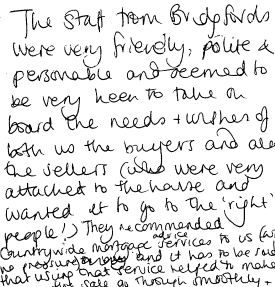 The staff from Bridgfords
were very friendly, polite &
personable and seemed to
be very keen to take on
board the needs + wishes of
both us the buyers and also
the sellers (who were very
attached to the house and
wanted it to go to the 'right'
people!) They recommended
Countrywide mortgage advice services to us (with
no pressure and it has to be said
that using that service helped to make
the sale go through smoothly.